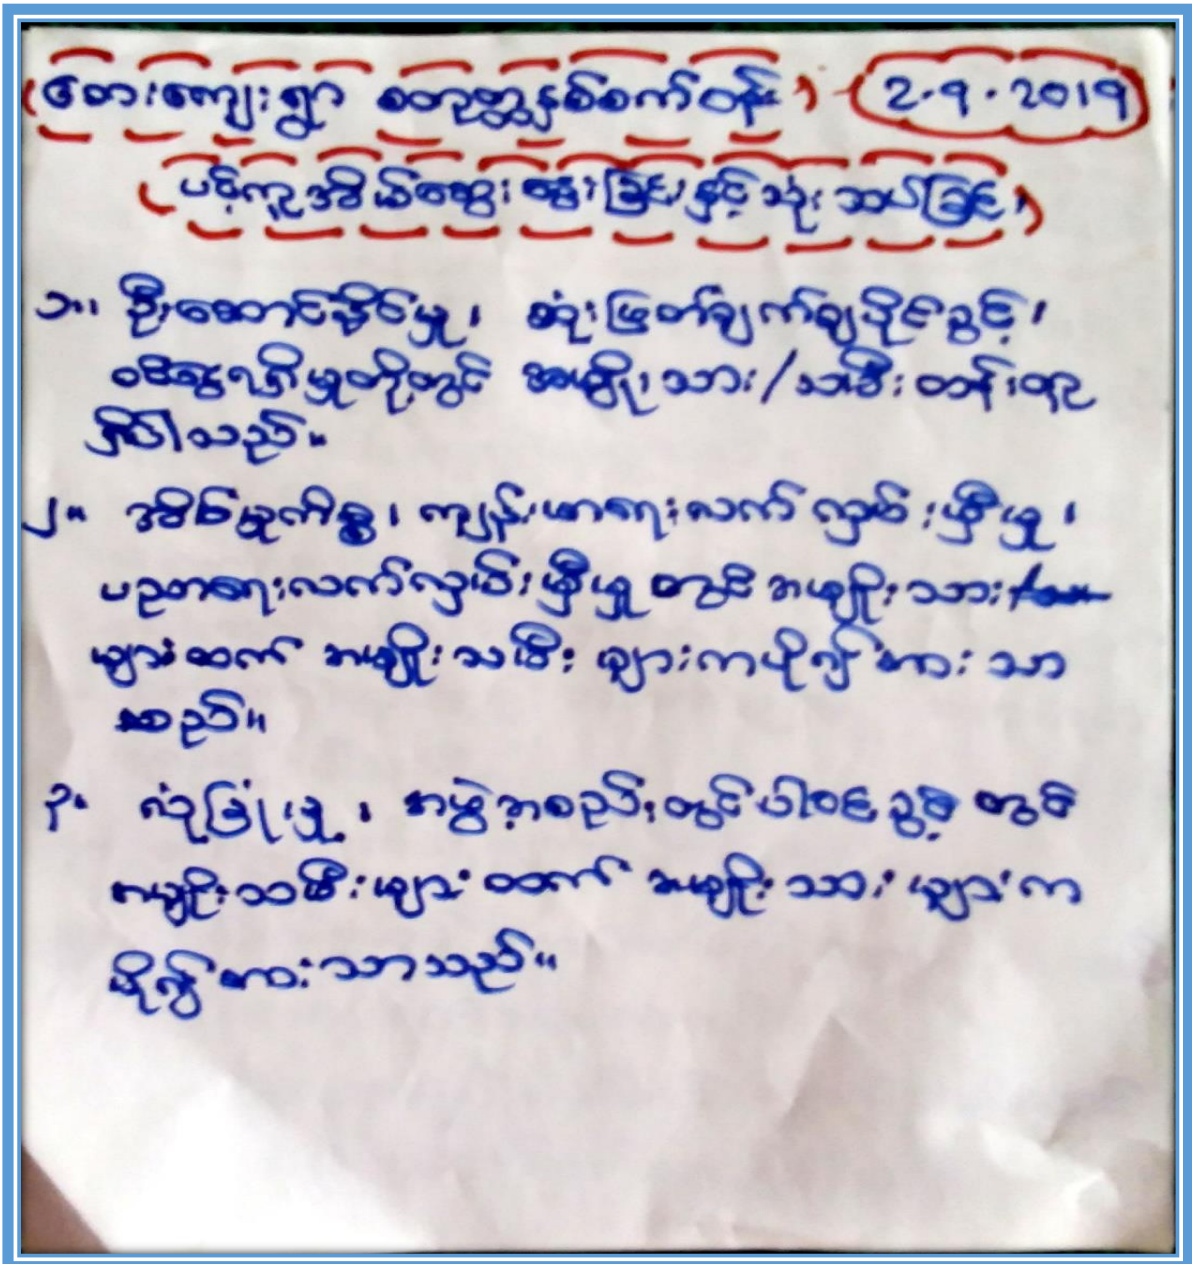 တေးကျေးရွာ စတုတ္ထနှစ်စက်ဝန်း 2.9.2019
ပင့်ကူအိမ်ဆွေးနွေးခြင်းနှင့်သုံးသပ်ခြင်း
၁။ ဦးဆောင်နိုင်မှု၊ ဆုံးဖြတ်ချက်ချပိုင်ခွင့်၊
ဝင်ငွေရရှိမှုတို့တွင် အမျိုးသား/သမီး တန်းတူ
ရှိပါသည်။
၂။ အိမ်မှုကိစ္စ၊ ကျန်းမာရေးလက်လှမ်းမှီမှု၊
ပညာရေးလက်လှမ်းမှီမှုတွင် အမျိုးသား
များထက် အမျိုးသမီးများကပို၍အားသာ
သည်။
၃။ လုံခြုံမှု၊ အဖွဲ့အစည်းတွင်ပါဝင်ခွင့်တွင်
အမျိုးသမီးများထက် အမျိုးသားများက
ပို၍အားသာသည်။